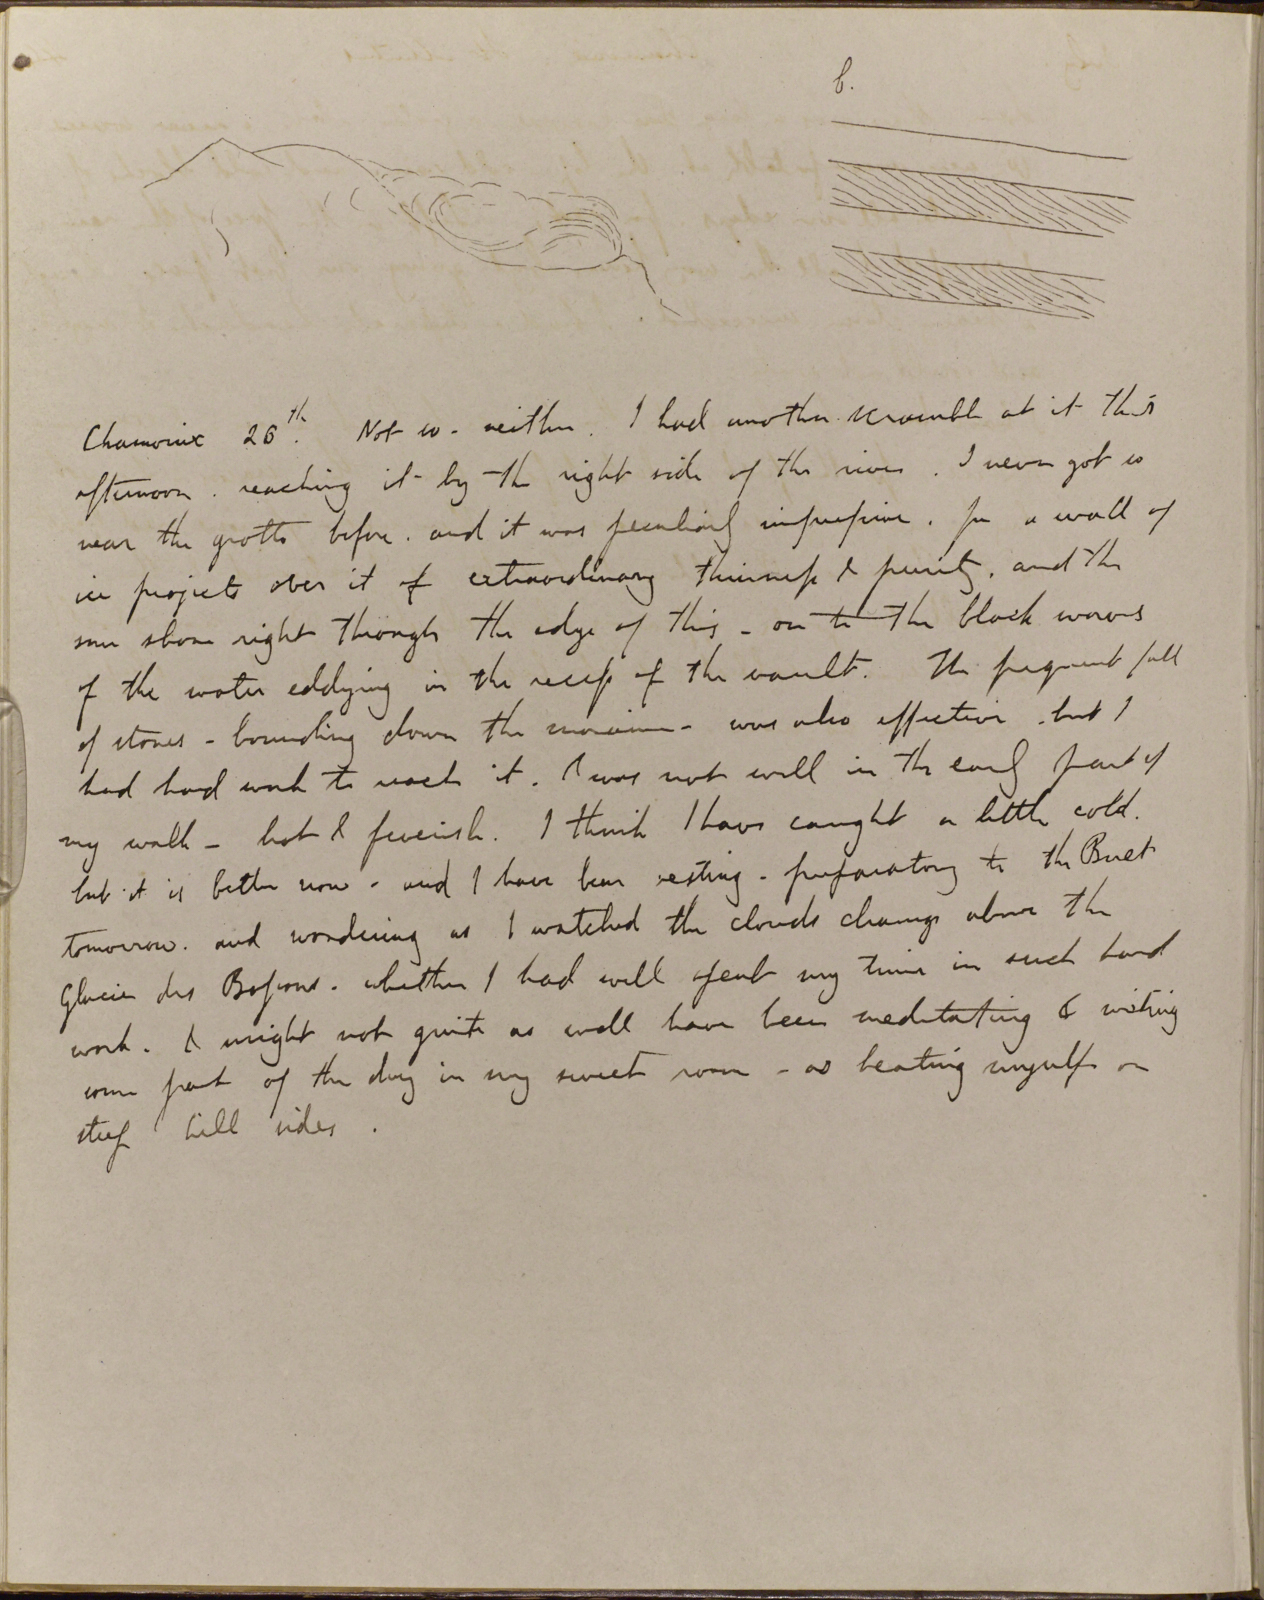 b.
Chamonix 26th. Not so - neither. I had another scramble at it this
afternoon. reaching it by the right side of the river. I never got so
near the grotto before. and it was peculiarly impressive. for a wall of
ice projects over it of extraordinary thinness & purity. and the
sun shone right through the edge of this - on to the black waves
of the water eddying in the recess of the vault. The frequent fall
of stones - bounding down the moraine - was also effective. but I
had hard work to reach it. I was not well in the early part of
my walk - hot & feverish. I think I have caught a little cold.
but it is better now - and I have been resting - preparatory to the Buet
tomorrow. and wondering as I watched the clouds change above the
Glacier des Bossons. whether I had well spent my time in such hard
work. & might not quite as well have been meditating & writing
some part of the day in my sweet room - as beating myself on
steep hill sides.